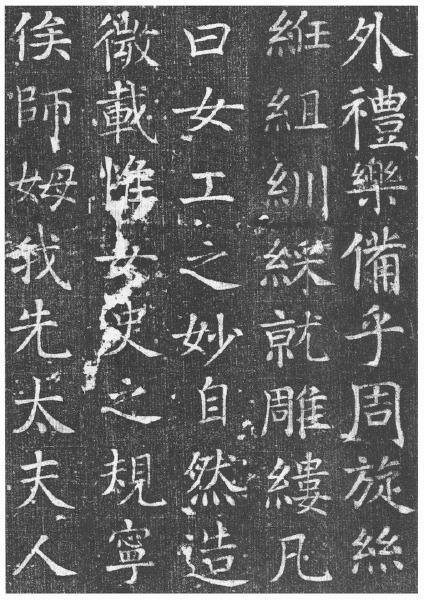 外禮樂備乎周旋絲
絍組紃綵就雕縷凡
曰女工之妙自然造
微載惟女史之規寧
俟師姆我先太夫人